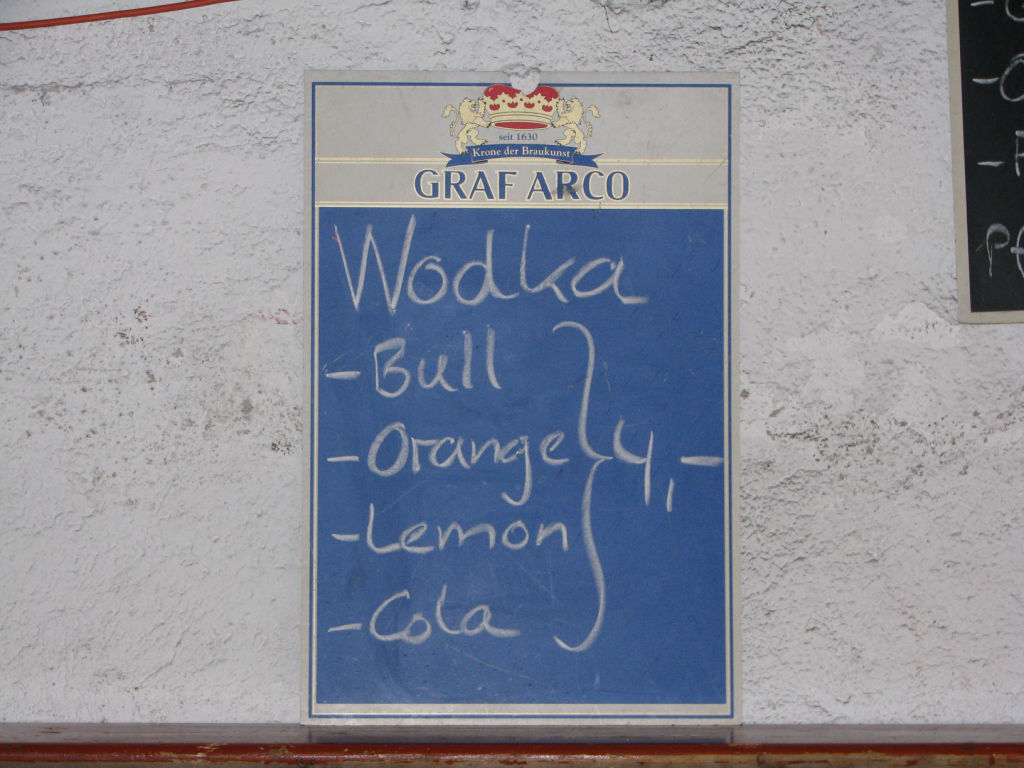 seit 1630
Krone der Braukunst
GRAF ARCO
Wodka
- Bull
- Orange
- Lemon
- Cola
4,-